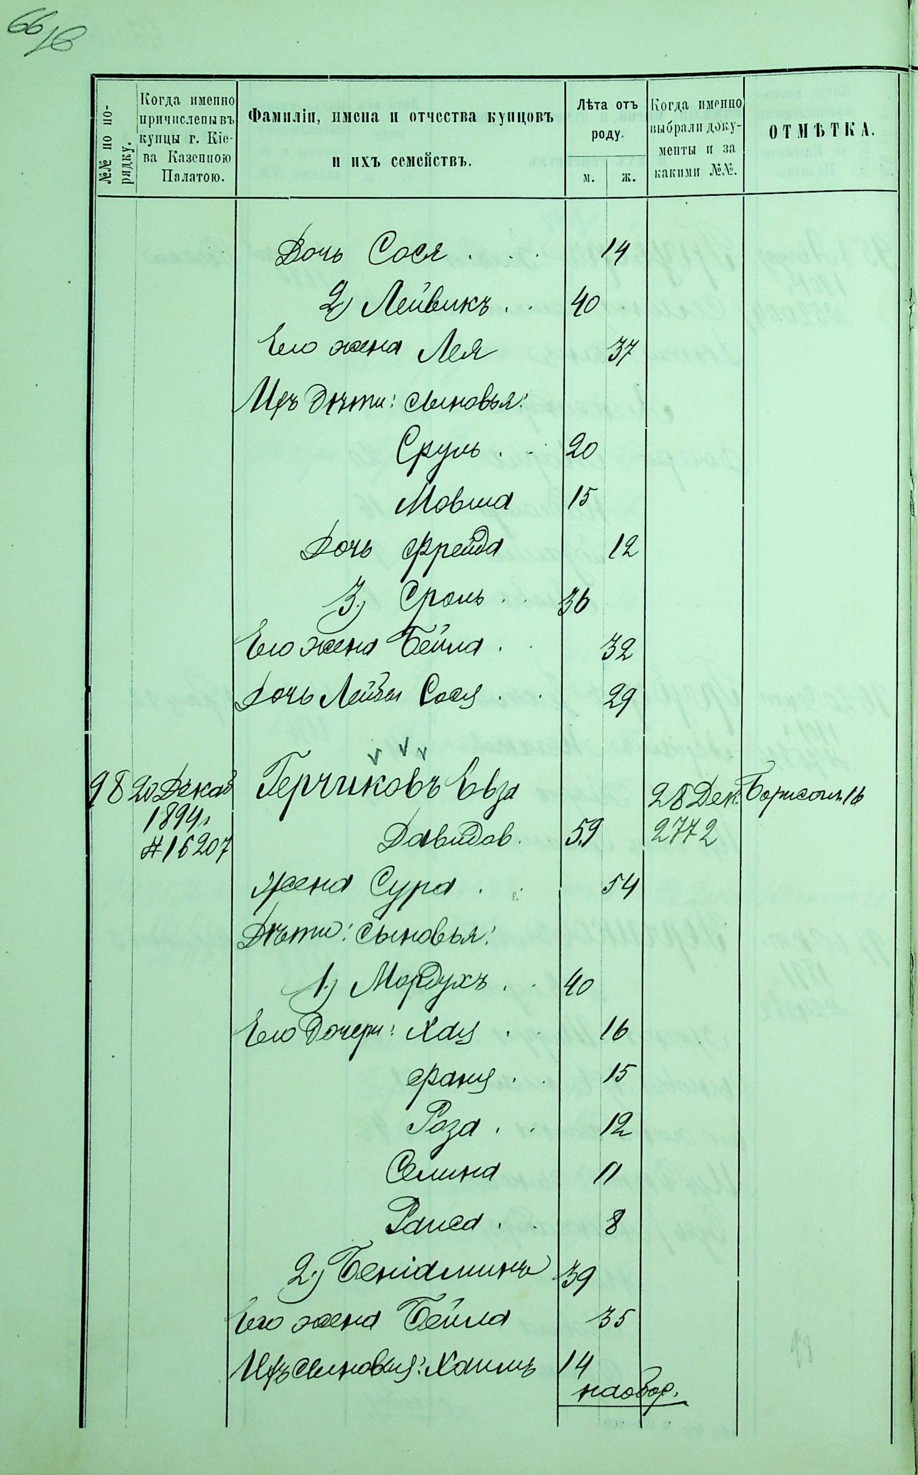 №№ по по-
рядку.
Когда именно
причислены въ
купцы г. Кіе-
ва Казенною
Палатою.
Фамиліи, имена и отчества купцовъ
и ихъ семействъ.
Лѣта отъ
роду.
м. ж.
Когда именно
выбрали доку-
менты и за
какими №№.
ОТМѢТКА.
Дочь Сося 14
2) Лейвикъ 40
Его жена Лея 37
Ихъ дѣти: сыновья:
Сруль 20
Мовша 15
Дочь Фрейда 12
3) Сроль 36
Его жена Бейла 32
Дочь Лейзи Сося 29
98 20 Декаб Герчиковъ Евза 28 Дек.
1894 Давидов. 59 2772
#16207
Жена Сура 54
Дѣти: сыновья:
1) Мордухъ 40
Его дочери: Хая 16
Фаня 15
Роза 12
Селина 11
Раиса 8
2) Беніаминъ 39
Его жена Бейла 35
Ихъ сыновья: Хаимъ 14
наобор.